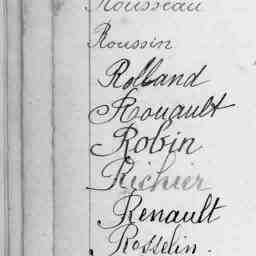 Rousseau
Roussin
Rolland
Rouault
Robin
Richier
Renault
Rosselin.